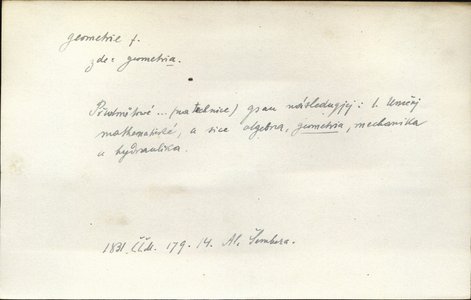 geometrie f.
zde: geometria.
Předmětové ... (na technice) gsau následugjcj: 1. Uměnj
mathematické, a sice algebra, geometria, mechanika
a hydraulika.
1831. ČČM. 179. 14. Al. Šembera.